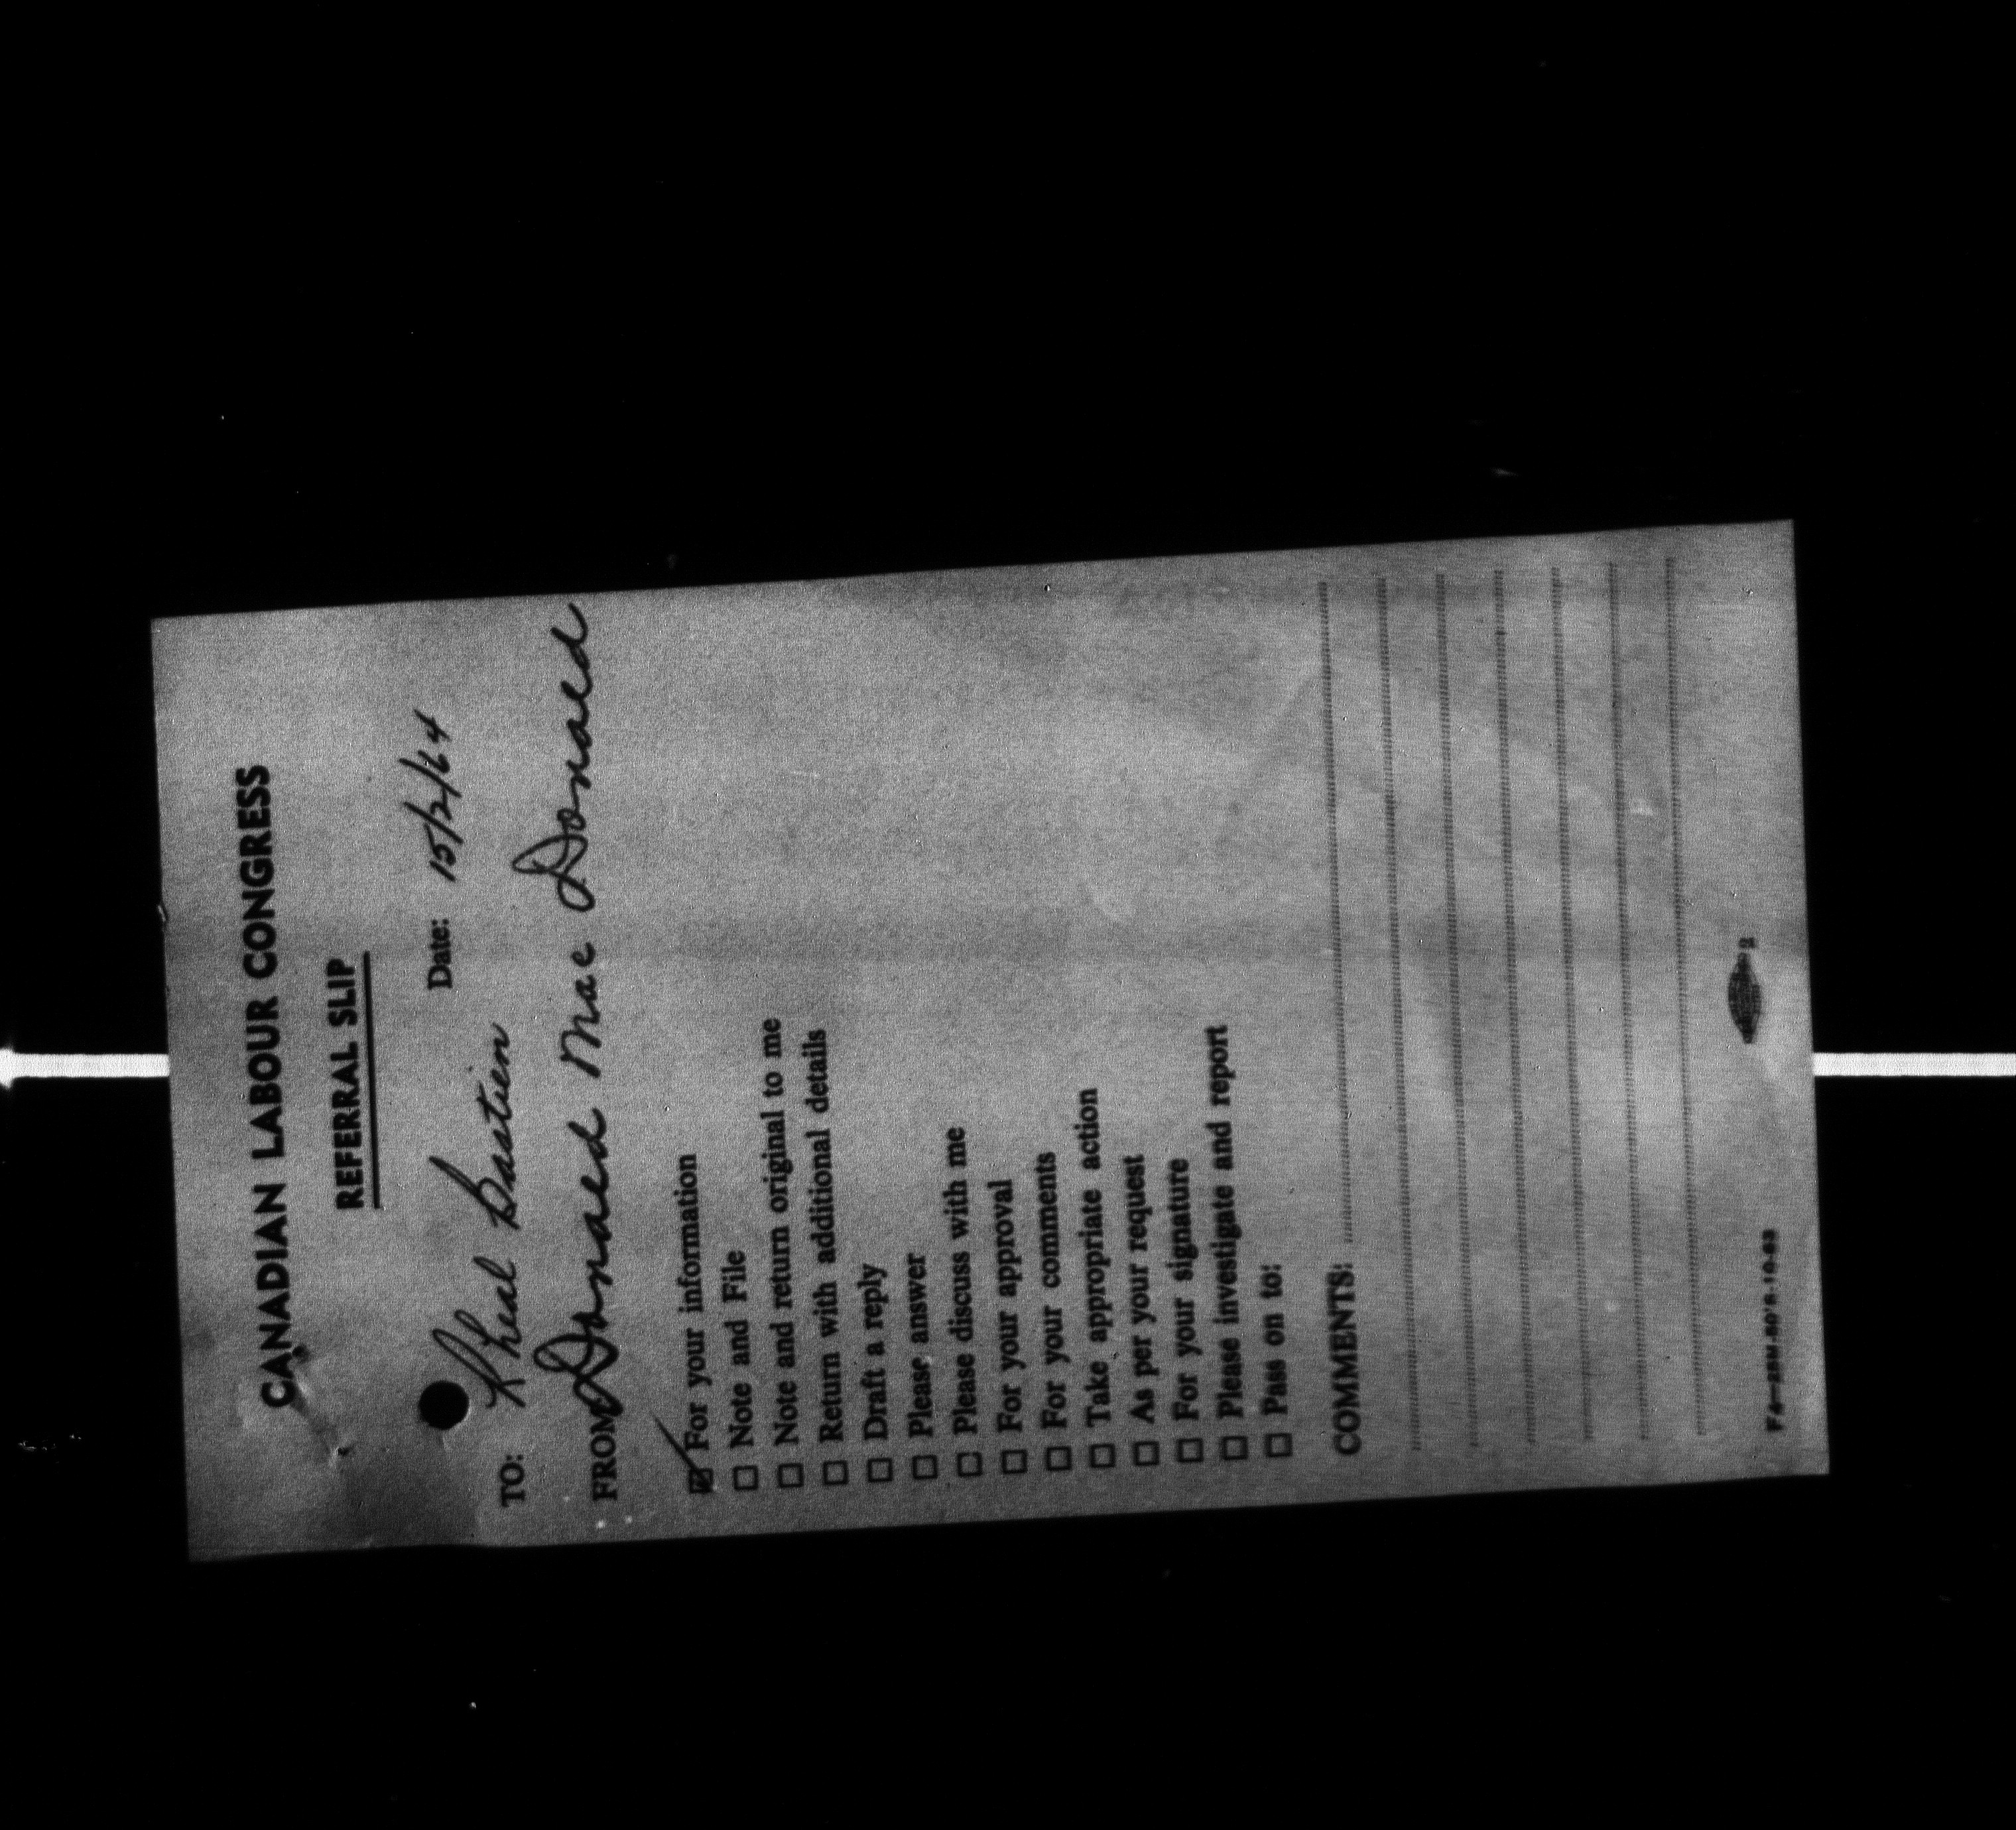 CANADIAN LABOUR CONGRESS
REFERRAL SLIP
Date: 15/2/64
TO: Rheal Bastien
FROM Donald Mac Donald
☑ For your information
☐ Note and File
☐ Note and return original to me
☐ Return with additional details
☐ Draft a reply
☐ Please answer
☐ Please discuss with me
☐ For your approval
☐ For your comments
☐ Take appropriate action
☐ As per your request
☐ For your signature
☐ Please investigate and report
☐ Pass on to:
COMMENTS: